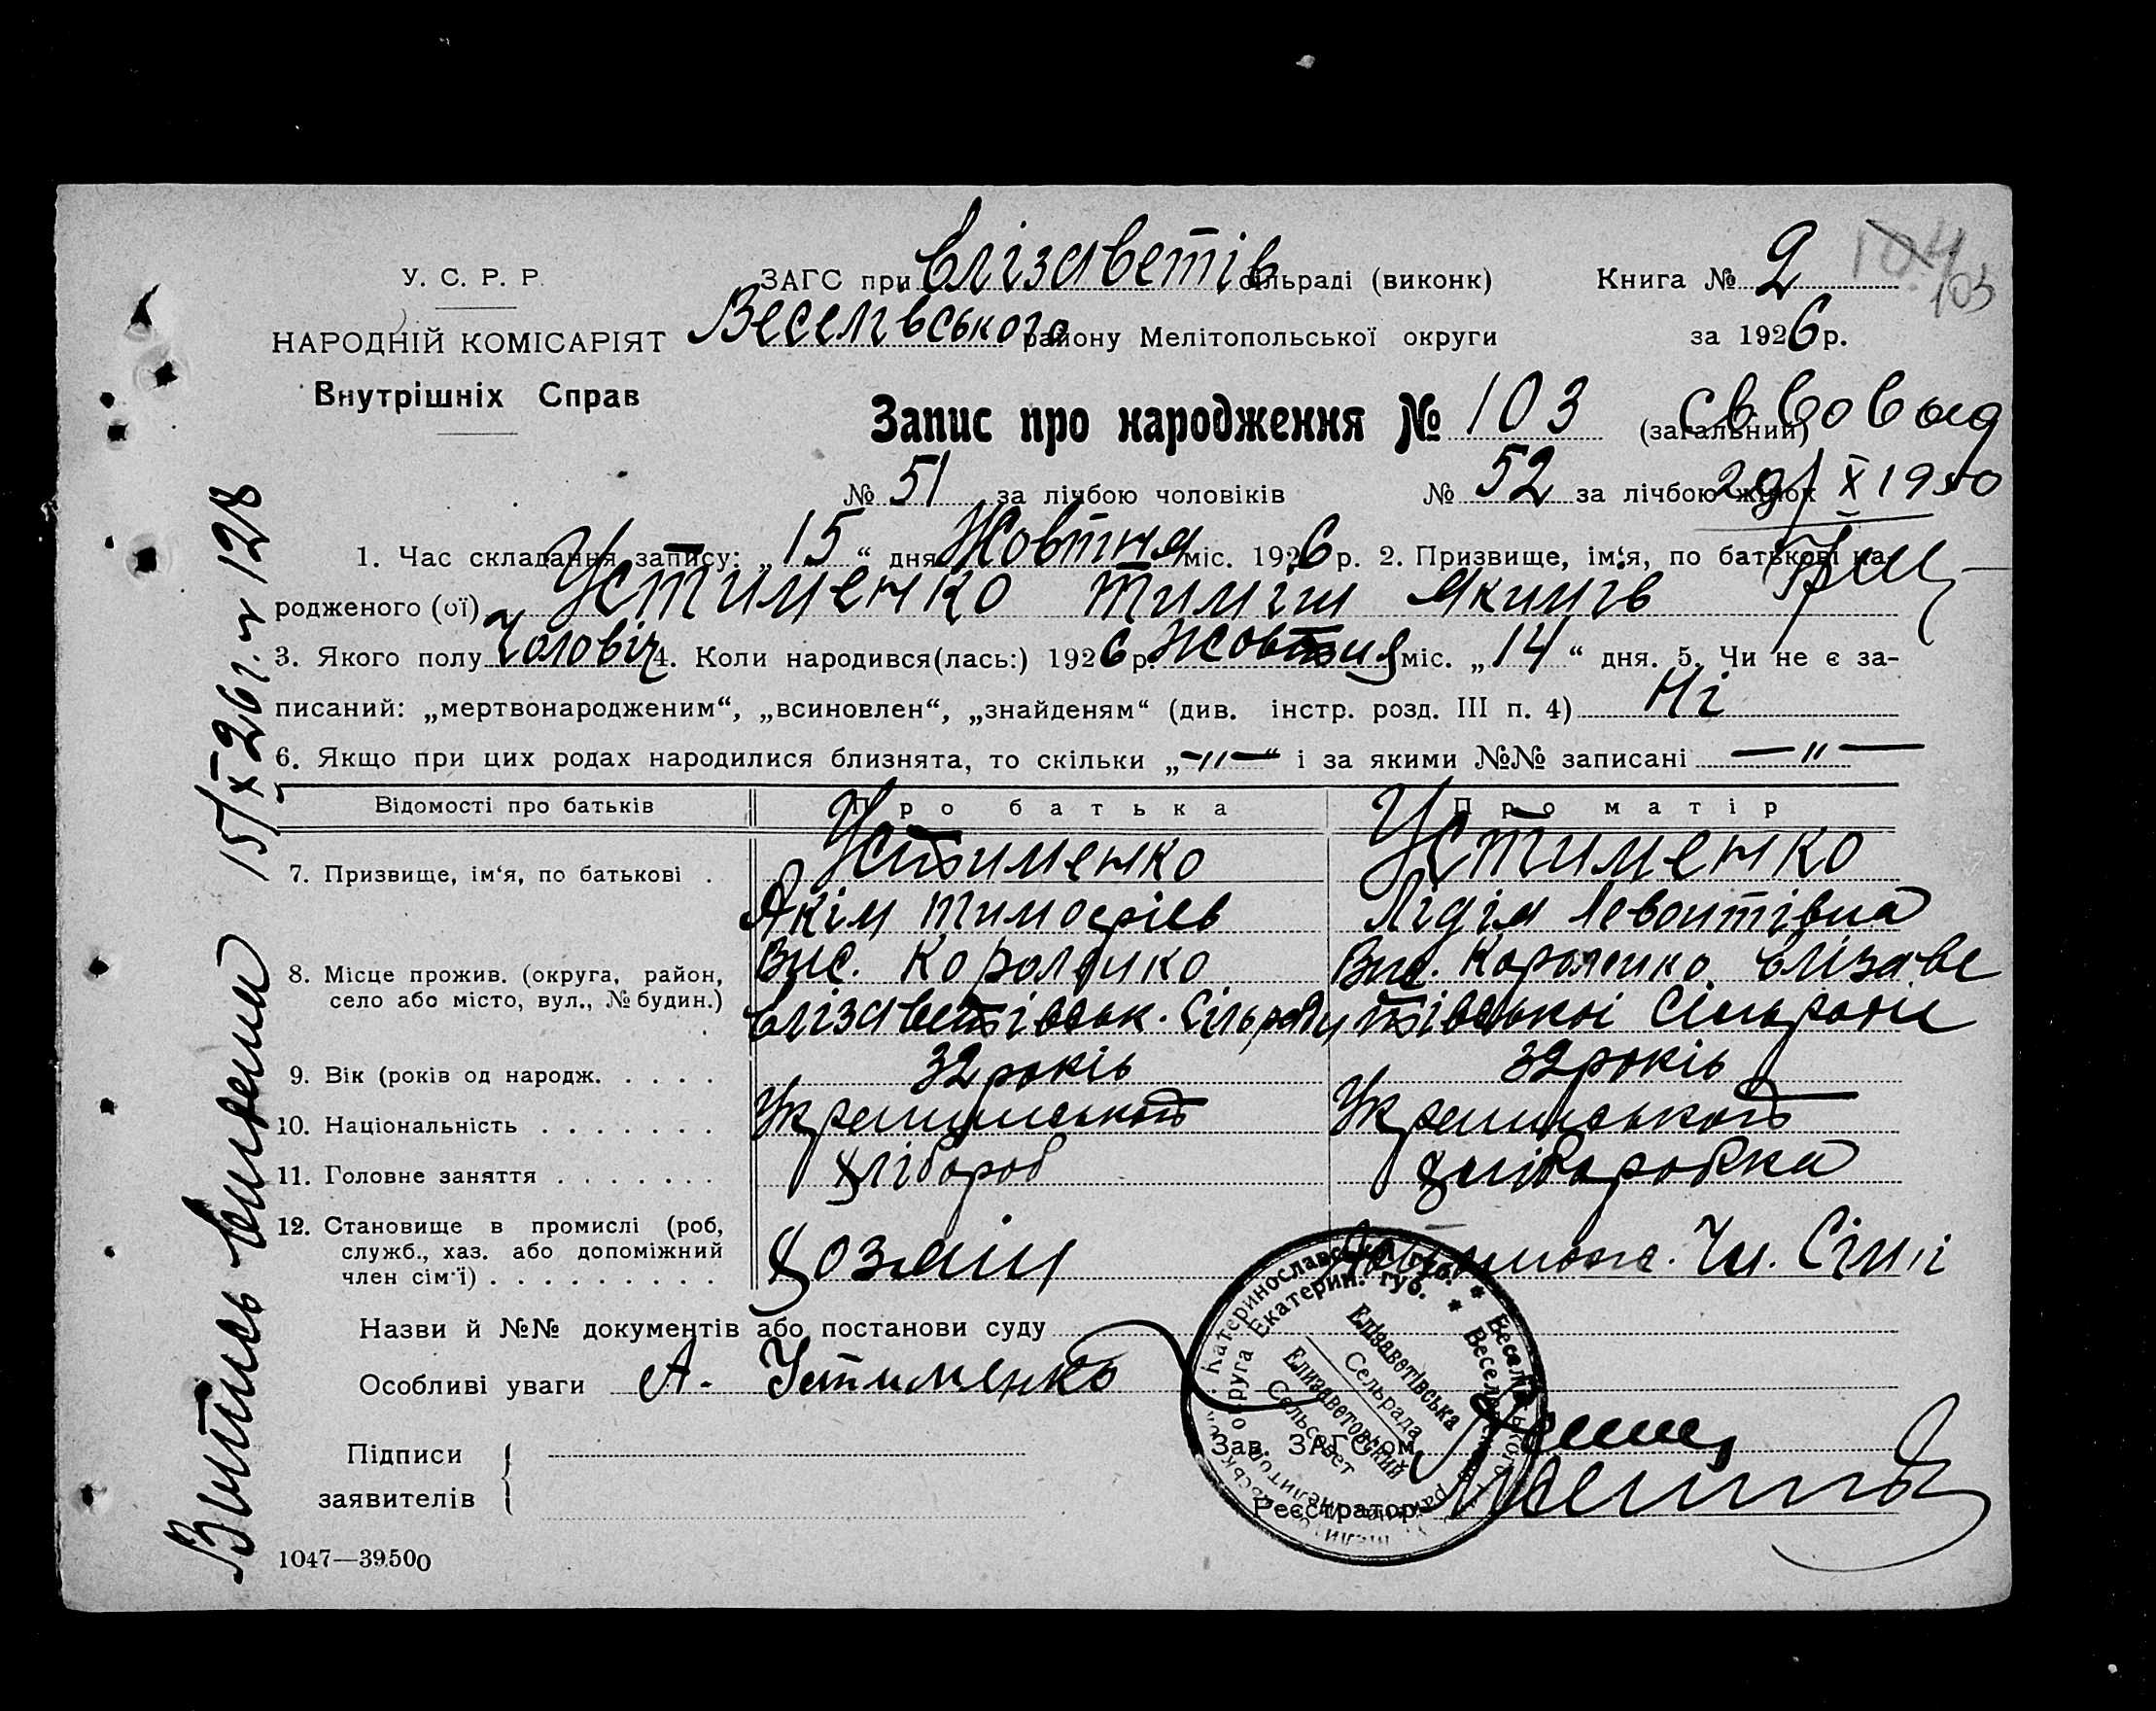 У. С. Р. Р.
НАРОДНІЙ КОМІСАРІЯТ
Внутрішніх Справ
ЗАГС при Єлізаветів сільраді (виконк)
Веселівського району Мелітопольської округи
Книга № 2
104
103
за 1926 р.
Запис про народження № 103 (загальний)
№ 51 за лічбою чоловіків № 52 за лічбою жінок
20/X 1950
1. Час складання запису: „15“ дня Жовтня міс. 1926 р. 2. Призвище, ім‘я, по батькові на-
родженого (ої) Устименко Тиміш Якимів
3. Якого полу Чоловіч 4. Коли народився(лась:) 1926 р. Жовтня міс. „14“ дня. 5. Чи не є за-
писаний: „мертвонародженим“, „всиновлен“, „знайденям“ (див. інстр. розд. III п. 4) Ні
6. Якщо при цих родах народилися близнята, то скільки „—"—“ і за якими №№ записані —"—
Відомості про батьків Про батька Про матір
7. Призвище, ім‘я, по батькові . Устименко Устименко
Якім Тимофіїв Лідія Левонтівна
8. Місце прожив. (округа, район, Вис. Короленко Вис. Короленко Єлізаве
село або місто, вул., № будин.) Єлізаветівськ. Сільради тівської Сільради
9. Вік (років од народж. . . . . 32 років 32 років
10. Національність . . . . . . .
11. Головне заняття . . . . . . . Хлібороб Хліборобка
12. Становище в промислі (роб,
служб., хаз. або допоміжний Хозяін Чл. Сімі
член сім‘ї) . . . . . . . . .
Назви й №№ документів або постанови суду
Особливі уваги А. Устименко
Підписи
заявителів
Зав. ЗАГС‘ом
Реєстратор
Єлізаветівська
Сельрада
Елизаветовский
Сельсовет
1047—39500
15/X 26 г. № 128